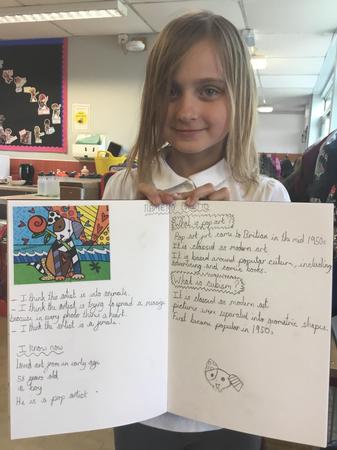 - I think the artist is into animals.
- I think the artist is trying to spread a message
because in every photo there's a heart.
- I think the artist is female.
I know now
Loved art from an early age
58 years old
a boy
He is a pop artist
What is pop art?
Pop art came to Britian in the mid 1950s
It is classed as modern art.
It is based around popular culture, including
advertising and comic books.
What is cubism?
It is classed as modern art.
picture was seperated into geometric shapes.
First became popular in 1950s